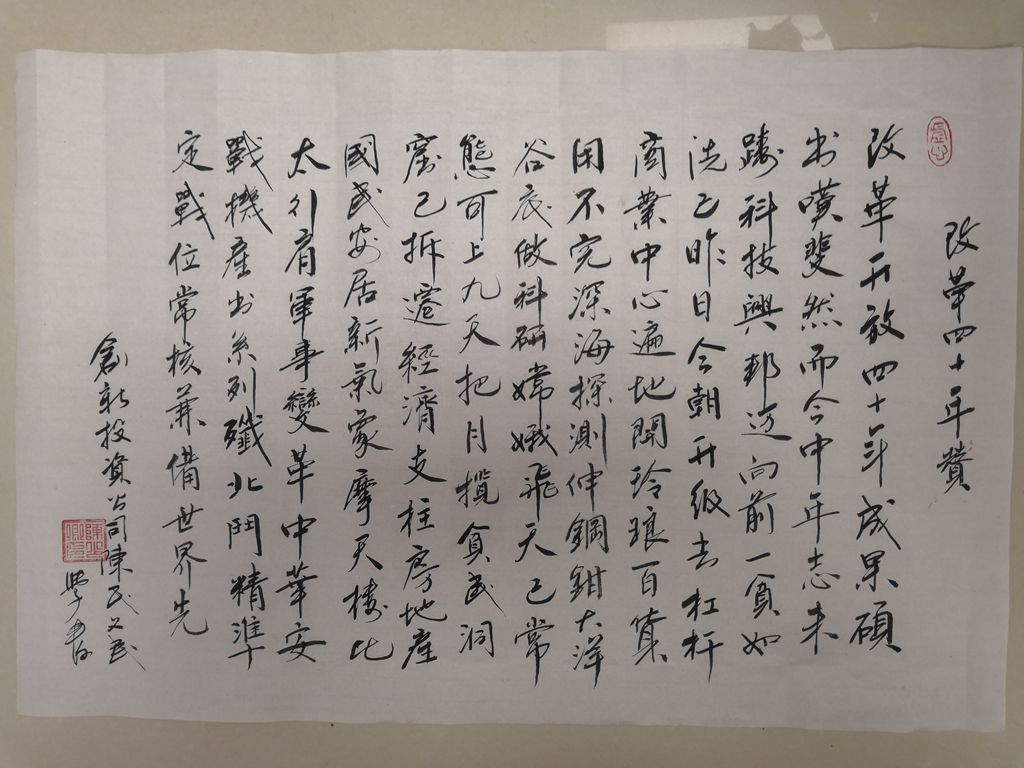 虚心
改革四十年贊
改革开放四十年成果碩
出嘆斐然而今中年志未
踌科技興邦迈向前一貧如
洗已昨日今朝升级去杠杆
商業中心遍地開玲琅百貨
用不完深海探測伸鋼鉗大洋
谷底做科研嫦娥飛天已常
態可上九天把月攬貧民洞
窟已拆遷經濟支柱房地產
國民安居新氣象摩天樓比
太行肩軍事變革中華安
戰機產出系列殲北鬥精準
定戰位常核兼備世界先
創新投資公司陳民
學書